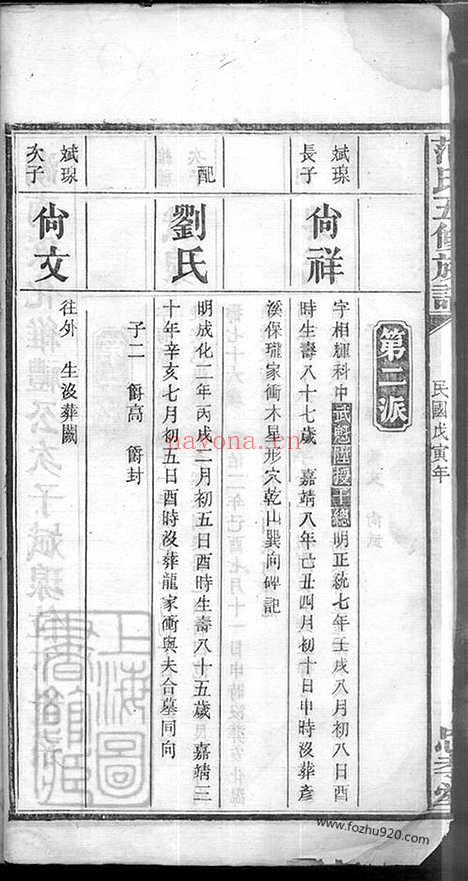 范氏五修族譜
民國戊寅年
第二派
斌璟長子
尙祥
字相耀科中武魁陞授千總明正統七年壬戌八月初八日酉
時生壽八十七歲　嘉靖八年己丑四月初十日申時沒葬彥
溪保瓏家衝木星形穴乾山巽向碑記
配
劉氏
明成化二年丙戌二月初五日酉時生壽八十五歲　嘉靖三
十年辛亥七月初五日酉時沒葬龍家衝與夫合墓同向
子二　爵高　爵封
斌璟次子
尙文
往外　生沒葬闕
上海圖書館藏
nayona.cn
www.fozhu920.com